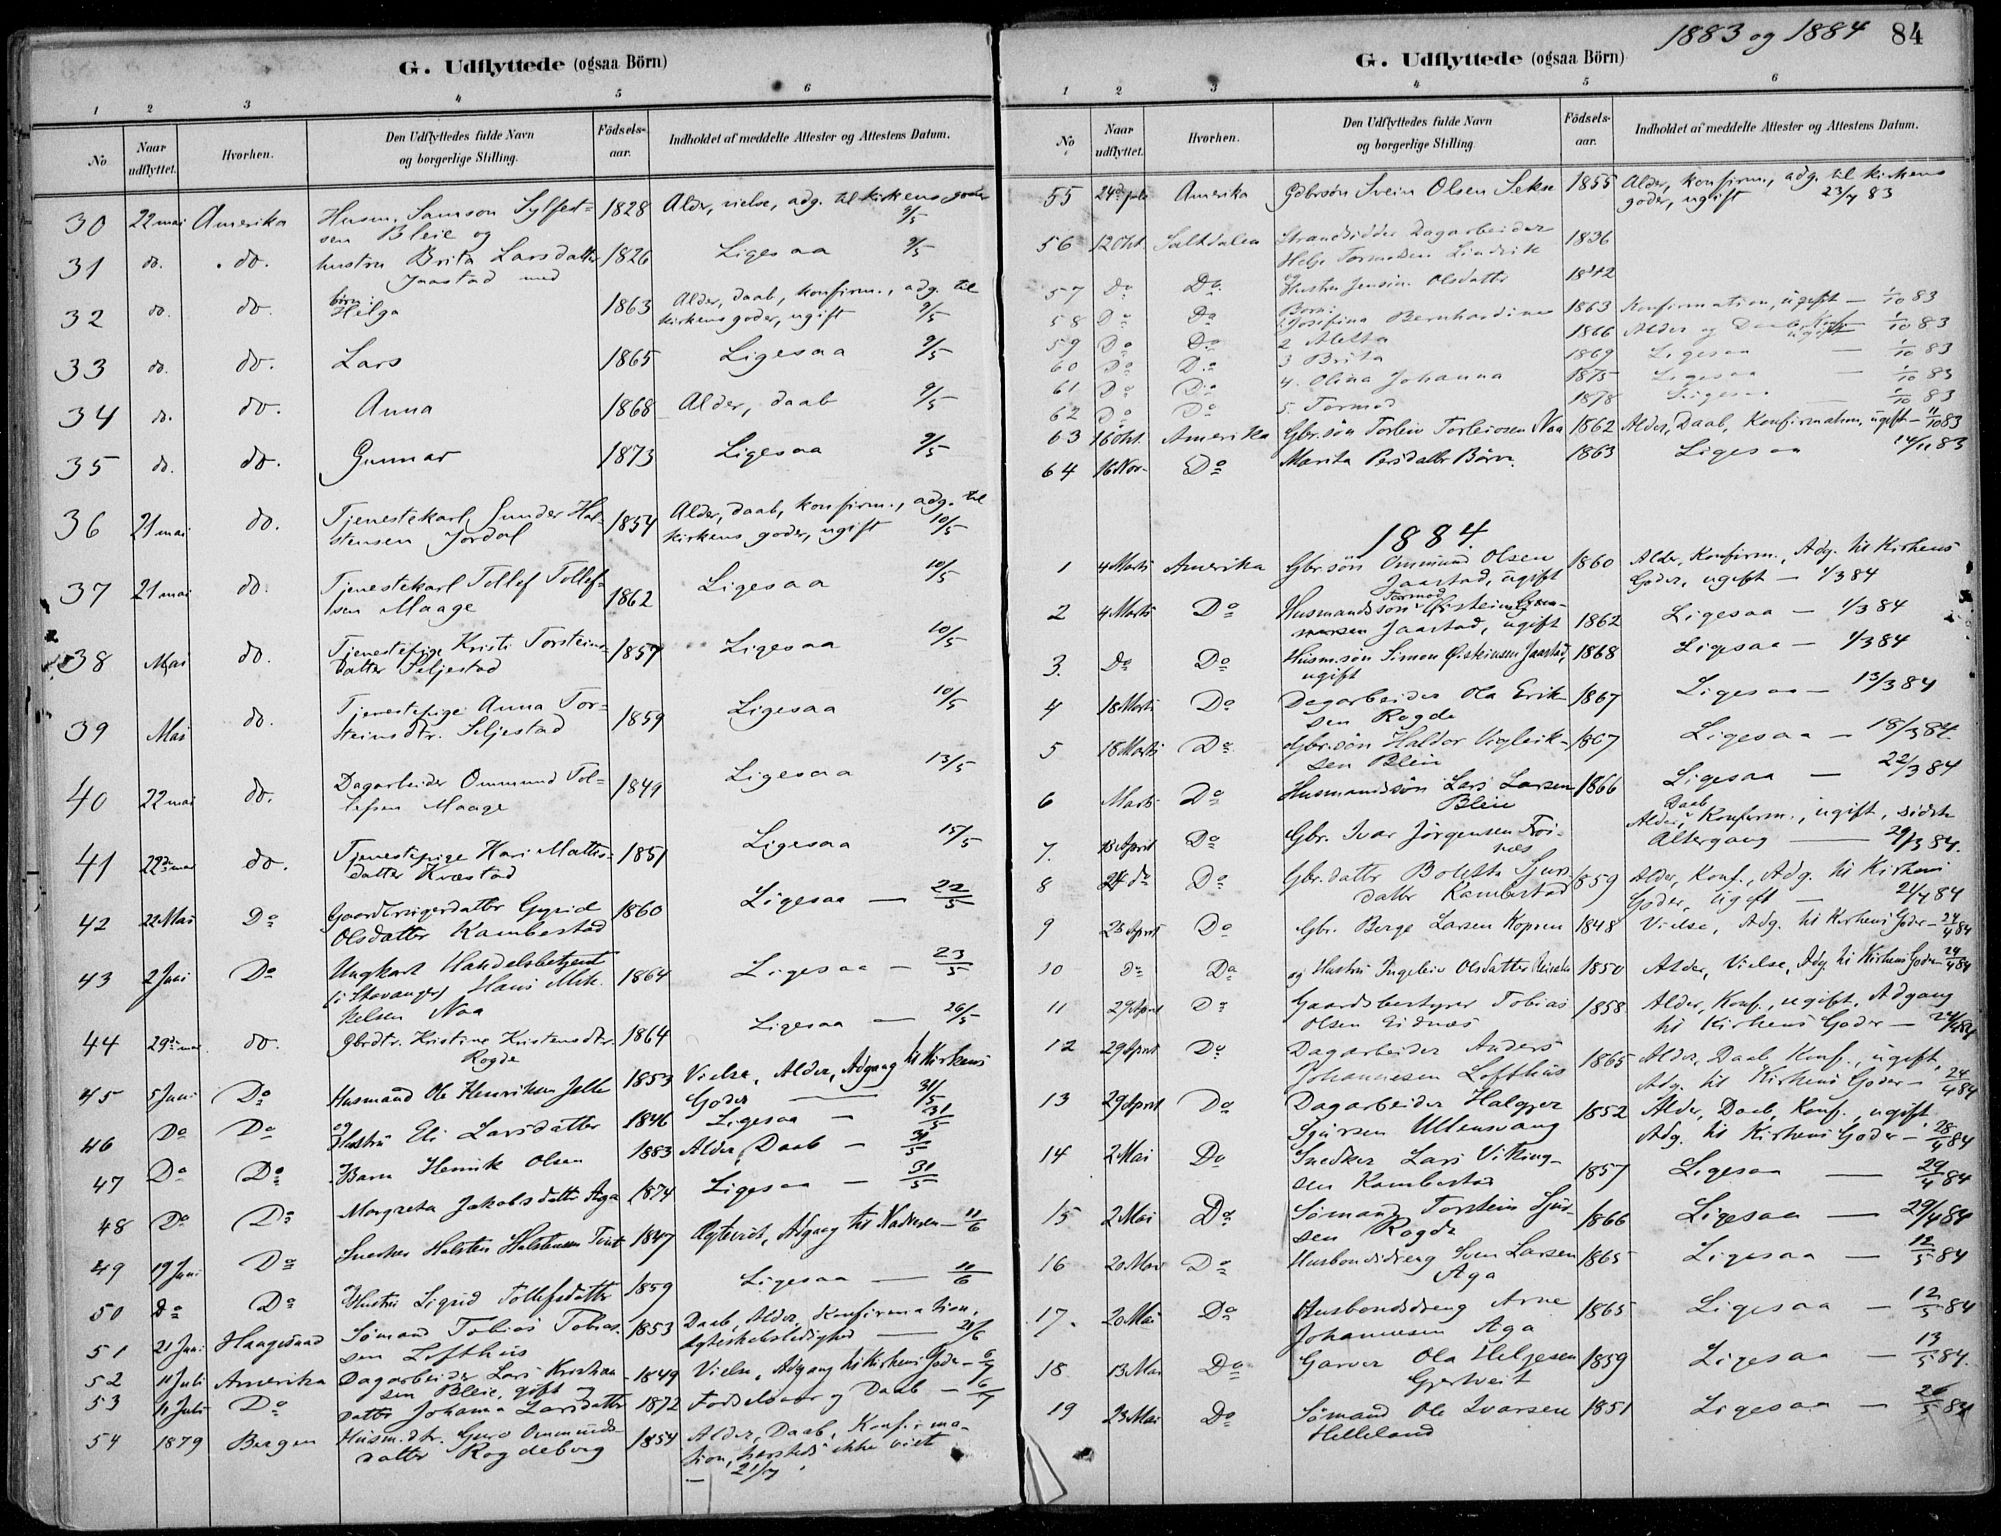 G. Udflyttede (ogsaa Börn)
1 2 3 4 5 6
No Naar udflyttet. Hvorhen. Den Udflyttedes fulde Navn og borgerlige Stilling. Födsels-aar. Indholdet af meddelte Attester og Attestens Datum.
30 22 mai Amerika Husm. Samson Sylfest- 1828 Alder, vielse, adg. til kirkens goder 9/5
sen Bleie og
31 do. do. hustru Brita Larsdatter 1826 Ligesaa 9/5
Jaastad med
32 do. do. børn: Helga 1863 Alder, daab, konfirm., adg. til
kirkens goder, ugift 9/5
33 do. do. Lars 1865 Ligesaa 9/5
34 do. do. Anna 1868 Alder, daab 9/5
35 do. do. Gunnar 1873 Ligesaa 9/5
36 21 mai do. Tjenestekarl Gunder Hal- 1854 Alder, daab, konfirm., adg. til
stensen Jordal kirkens goder, ugift 10/5
37 21 mai do. Tjenestekarl Tollef Tollef- 1862 Ligesaa 10/5
sen Maage
38 Mai do. Tjenestepige Kristi Torsteins- 1857 Ligesaa 10/5
datter Seljestad
39 Mai do. Tjenestepige Anna Tor- 1859 Ligesaa 10/5
steinsdtr. Seljestad
40 22 mai do. Dagarbeider Ommund Tol- 1849 Ligesaa 13/5
lefsen Maage
41 22de mai do. Tjenestepige Kari Mattis- 1851 Ligesaa 15/5
datter Kvæstad
42 22 Mai Do Gaardbrugerdatter Gyrid 1860 Ligesaa — 22/5
Olsdatter Kambestad
43 2 Juni Do Ungkarl Handelsbetjent 1864 Ligesaa — 23/5
(i Stavanger) Hans Mik-
kelsen Naa
44 29de mai do. Gbrdtr. Kristine Kristensdtr. 1864 Ligesaa — 26/5
Rogde
45 5 Juni Do Husmand Ole Henriksen Jelle 1853 Vielse, Alder, Adgang til Kirkens
Goder — 31/5
46 Do Do og Hustru Eli Larsdatter 1846 Ligesaa — 31/5
47 Do Do Barn Henrik Olsen 1883 Alder, Daab — 31/5
48 Do Do Margreta Jakobsdatter Aga 1874 Ligesaa — 31/5
49 19 Juni Do Snedker Halsten Halstensen 1847 Adgang til Nadveren — 11/6
50 Do Do Hustru Sigrid Tollefsdatter 1859 Ligesaa — 11/6
51 21 Juni Haugesund Sømand Tobias Tobias- 1853 Daab, Alder, Konfirmation,
sen Lofthus Ægteskabsledighed — 21/6
52 11 Juli Amerika Dagarbeider Lars Kristian- 1849 Vielse, Adgang til Kirkens Goder — 6/7
sen Bleie, gift og
53 11 Juli Do datter Johanna Larsdatter 1872 Fødselsaar og Daab — 6/7
54 1879 Bergen Husm.dtr. Guro Ommunds- 1854 Alder, Daab, Konfirma-
datter Rogdeberg tion, herfteds ikke viet
— 21/7
1883 og 1884 84
G. Udflyttede (ogsaa Börn)
1 2 3 4 5 6
No. Naar udflyttet. Hvorhen. Den Udflyttedes fulde Navn og borgerlige Stilling. Födsels-aar. Indholdet af meddelte Attester og Attestens Datum.
55 24de juli Amerika Gdbrsøn Svein Olsen Sekse 1855 Alder, konfirm., adg. til kirkens
goder, ugift 23/7 83
56 12 Okt. Saltdalen Strandsidder Dagarbeider 1836
Helje Tormodsen Lindvik
57 Do Do og Hustru Jensine Olsdatter 1842
58 Do Do Børn: 1 Josefina Bernhardine 1863 Konfirmation, ugift — 1/10 83
59 Do Do 2 Aletta 1866 Alder og Daab, Konf. ugift — 1/10 83
60 Do Do 3 Brita 1869 Ligesaa — 1/10 83
61 Do Do 4. Olina Johanna 1875 Ligesaa — 1/10 83
62 Do Do 5. Tormod 1878 Ligesaa — 1/10 83
63 16 Okt. Amerika Gbr.søn Torleiv Torleivsen Naa 1862 Alder, Daab, Konfirmation, ugift — 11/10 83
64 16 Nov. Do Marita Persdatter Børve 1863 Ligesaa 14/11 83
1884.
1 4 Marts Amerika Gbrsøn Ommund Olsen 1860 Alder, Konfirm., Adg. til Kirkens
Jaastad, ugift Goder, ugift — 1/3 84
2 4 Marts Do Husmandssøn Tormod 1862 Ligesaa — 1/3 84
Jaastad, ugift
3. Do Do Husm.søn Simon Øisteinsen Jaastad, 1868 Ligesaa — 1/3 84
ugift
4 18 Marts Do Dagarbeider Ola Erik- 1867 Ligesaa — 13/3 84
sen Rogde
5 18 Marts Do Gbr.søn Haldor Vigleik- 1867 Ligesaa — 18/3 84.
sen Bleie
6 Marts Do Husmandssøn Lars Larsen 1866 Ligesaa — 22/3 84
Bleie
7. 18 April Do Gbr. Ivar Jørgensen Frøi- Alder, Daab, Konfirm., ugift, sidste
næs Altergang — 29/3 84.
8 24 do Do Gbr.datter Boletta Sjurs- 1859 Alder, Konf., Adg. til Kirkens
datter Kambestad Goder, ugift — 21/4 84
9 28 April Do Gbr. Berge Larsen Kopren 1848 Vielse, Adg. til Kirkens Goder — 24/4 84
10 do Do og Hustru Ingeleiv Olsdatter 1850 Alder, Vielse, Adg. til Kirkens Goder — 24/4 84
11 29 April Do Gaardsbestyrer Tobias 1858 Alder, Konf., ugift, Adgang
Olsen Eidnæs til Kirkens Goder — 24/4 84
12 29 April Do Dagarbeider Anders 1865 Alder, Daab, Konf., ugift,
Johannesen Lofthus Adg. til Kirkens Goder — 24/4 84
13 29 April Do Dagarbeider Halgjer 1852 Alder, Daab, Konf., ugift
Sjursen Ullensvang Adg. til Kirkens Goder — 28/4 84
14 2 Mai Do Snedker Lars Viking- 1857 Ligesaa — 29/4 84
sen Kambestad
15 2 Mai Do Sømand Torstein Sjur- 1866 Ligesaa — 29/4 84
sen Rogde
16 20 Mai Do Husbondsdreng Sven Larsen 1865 Ligesaa — 12/5 84
Aga
17. 20 Mai Do Husbondsdreng Arne 1865 Ligesaa — 12/5 84
Johannesen Aga
18 13 Mai Do Garver Ola Helgesen 1859 Ligesaa — 13/5 84.
Gjertveit
19 23 Mai Do Sømand Ole Ivarsen 1851 Ligesaa — 26/5 84
Helleland